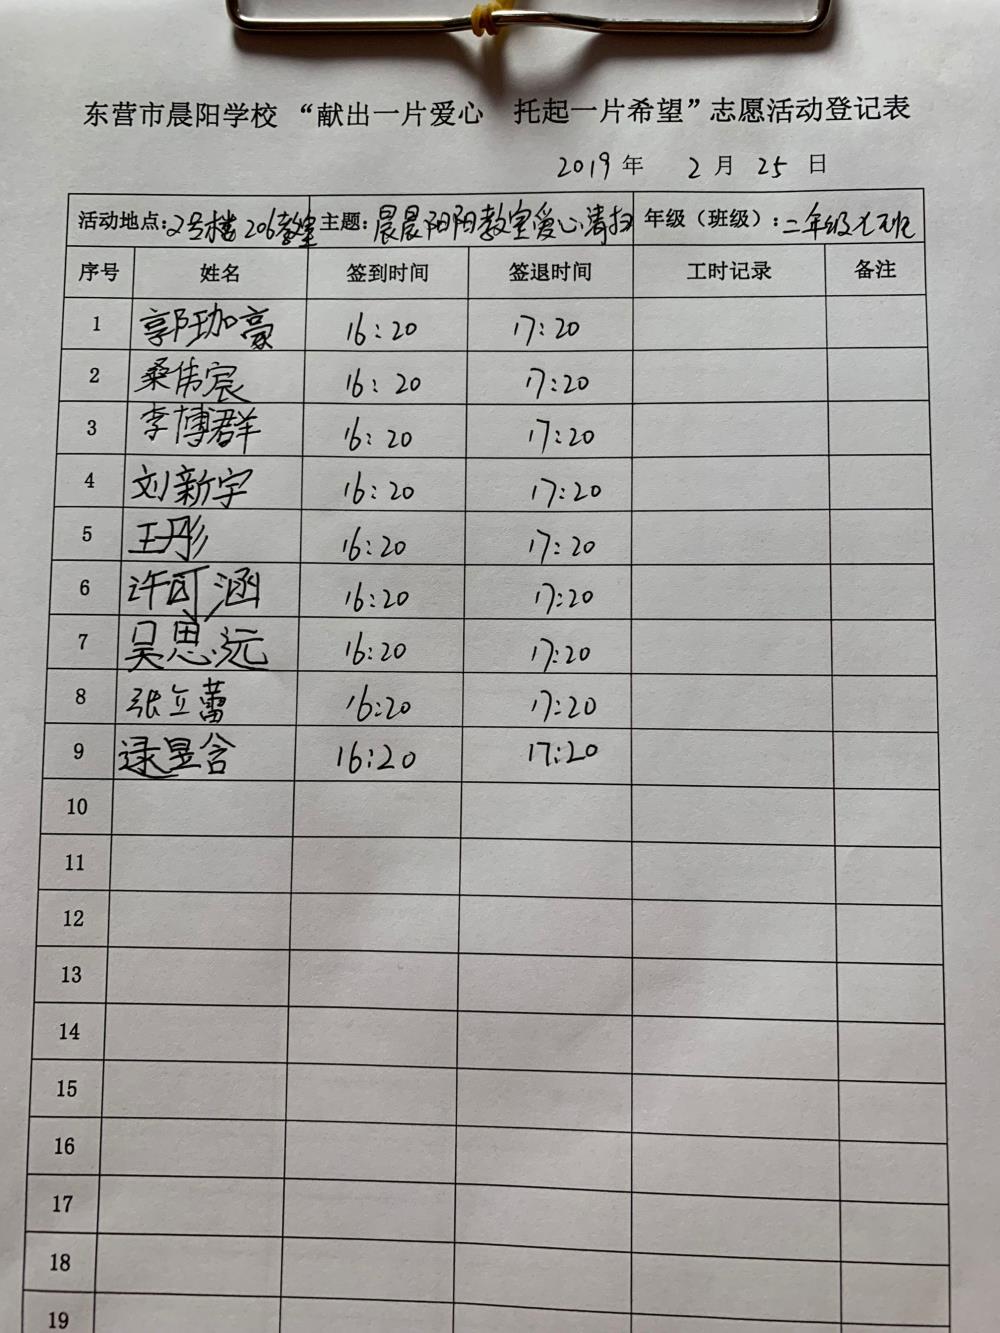 东营市晨阳学校 “献出一片爱心 托起一片希望”志愿活动登记表
2019 年 2 月 25 日
活动地点:2号楼206教室 主题:晨晨阳阳教室爱心清扫 年级（班级）:二年级七班
序号 姓名 签到时间 签退时间 工时记录 备注
1 郭珈豪 16:20 17:20
2 桑伟宸 16:20 17:20
3 李博群 16:20 17:20
4 刘新宇 16:20 17:20
5 王彤 16:20 17:20
6 许可涵 16:20 17:20
7 吴思远 16:20 17:20
8 张立蕾 16:20 17:20
9 逯昱含 16:20 17:20
10
11
12
13
14
15
16
17
18
19